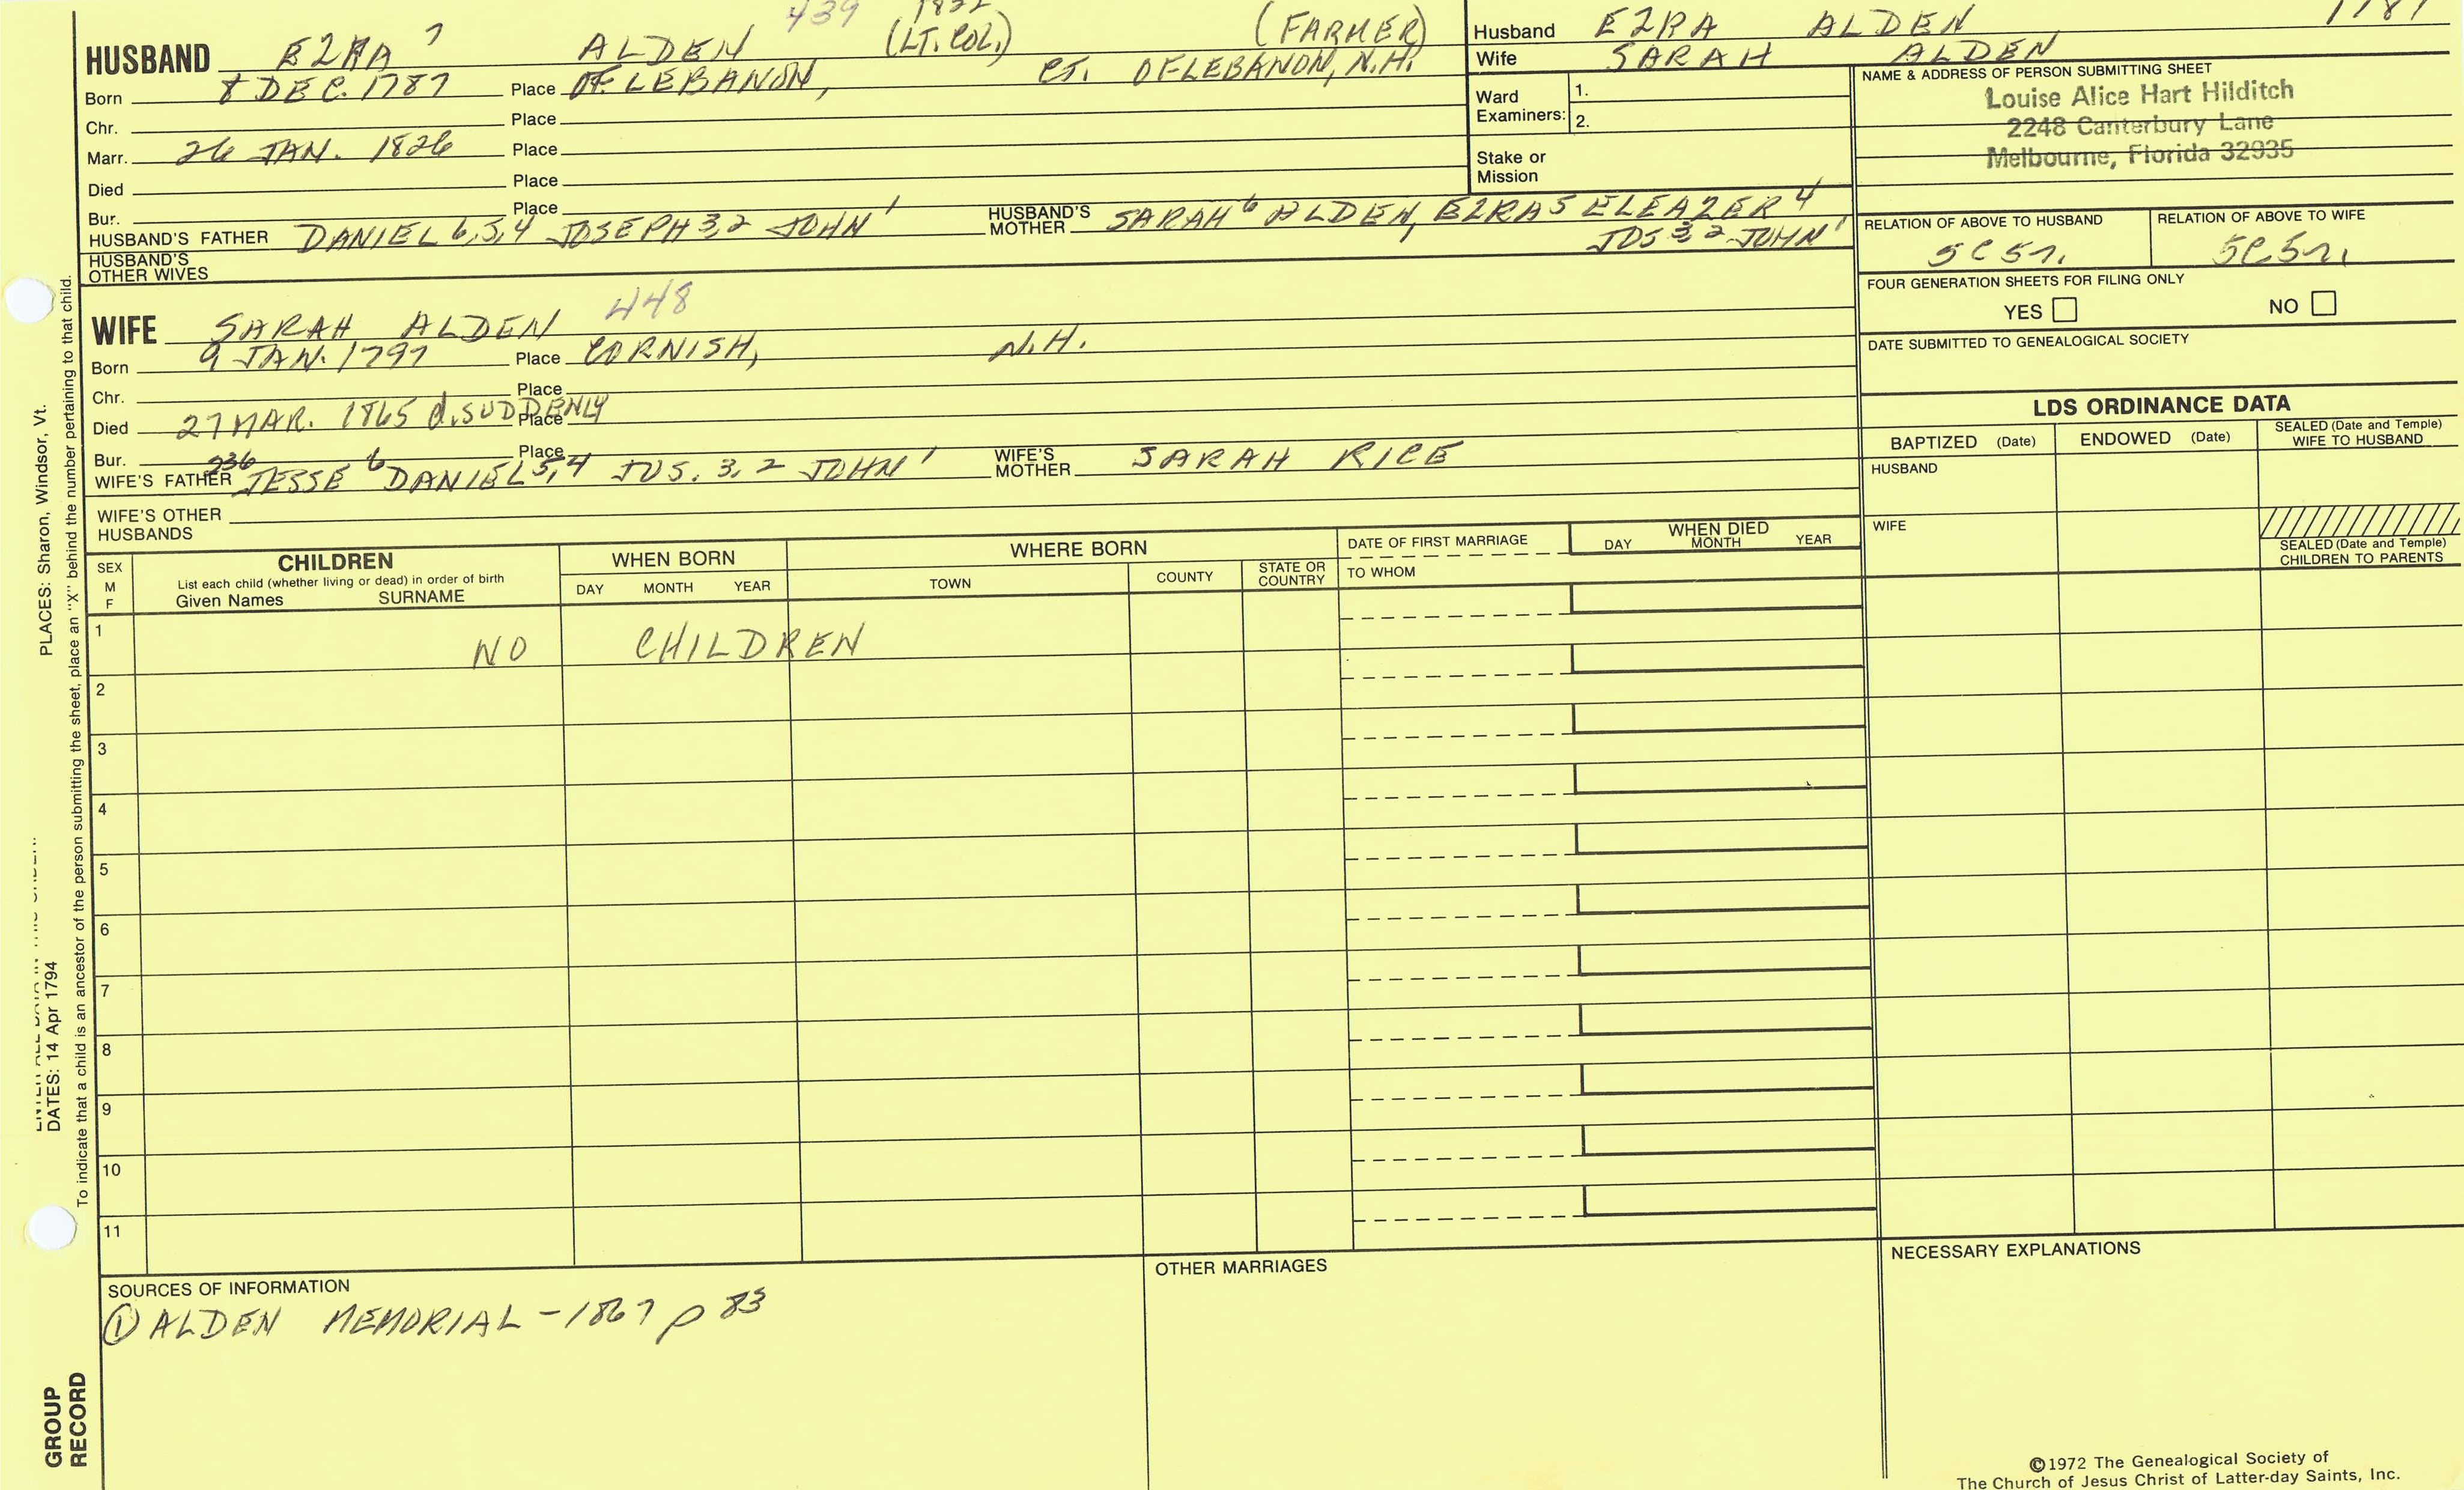 439
HUSBAND EZRA 7 ALDEN (LT. COL.) (FARMER)
Born 8 DEC. 1787 Place OF LEBANON, CT. OF LEBANON, N.H.
Chr. Place
Marr. 26 JAN. 1826 Place
Died Place
Bur. Place
HUSBAND'S FATHER DANIEL 6,5,4 JOSEPH 3,2 JOHN 1 HUSBAND'S MOTHER SARAH 6 ALDEN, EZRA 5 ELEAZER 4
JOS 3 2 JOHN 1
HUSBAND'S OTHER WIVES
Husband EZRA ALDEN 1787
Wife SARAH ALDEN
Ward Examiners: 1.
2.
Stake or Mission
NAME & ADDRESS OF PERSON SUBMITTING SHEET
Louise Alice Hart Hilditch
2248 Canterbury Lane
Melbourne, Florida 32935
RELATION OF ABOVE TO HUSBAND RELATION OF ABOVE TO WIFE
5C5r. 5C5r.
FOUR GENERATION SHEETS FOR FILING ONLY
YES NO
DATE SUBMITTED TO GENEALOGICAL SOCIETY
448
WIFE SARAH ALDEN
Born 9 JAN. 1797 Place CORNISH, N.H.
Chr. Place
Died 27 MAR. 1865 d. SUDDENLY Place
Bur. Place
WIFE'S FATHER 236 JESSE 6 DANIEL 5,4 JOS. 3, 2 JOHN 1 WIFE'S MOTHER SARAH RICE
WIFE'S OTHER HUSBANDS
LDS ORDINANCE DATA
BAPTIZED (Date) ENDOWED (Date) SEALED (Date and Temple) WIFE TO HUSBAND
HUSBAND
WIFE
SEALED (Date and Temple) CHILDREN TO PARENTS
SEX M F
CHILDREN
List each child (whether living or dead) in order of birth
Given Names SURNAME
WHEN BORN
DAY MONTH YEAR
WHERE BORN
TOWN COUNTY STATE OR COUNTRY
DATE OF FIRST MARRIAGE
TO WHOM
WHEN DIED
DAY MONTH YEAR
1 NO CHILDREN
2
3
4
5
6
7
8
9
10
11
SOURCES OF INFORMATION
① ALDEN MEMORIAL - 1867 p 83
OTHER MARRIAGES
NECESSARY EXPLANATIONS
©1972 The Genealogical Society of
The Church of Jesus Christ of Latter-day Saints, Inc.
PLACES: Sharon, Windsor, Vt.
DATES: 14 Apr 1794
To indicate that a child is an ancestor of the person submitting the sheet, place an "X" behind the number pertaining to that child.
GROUP
RECORD